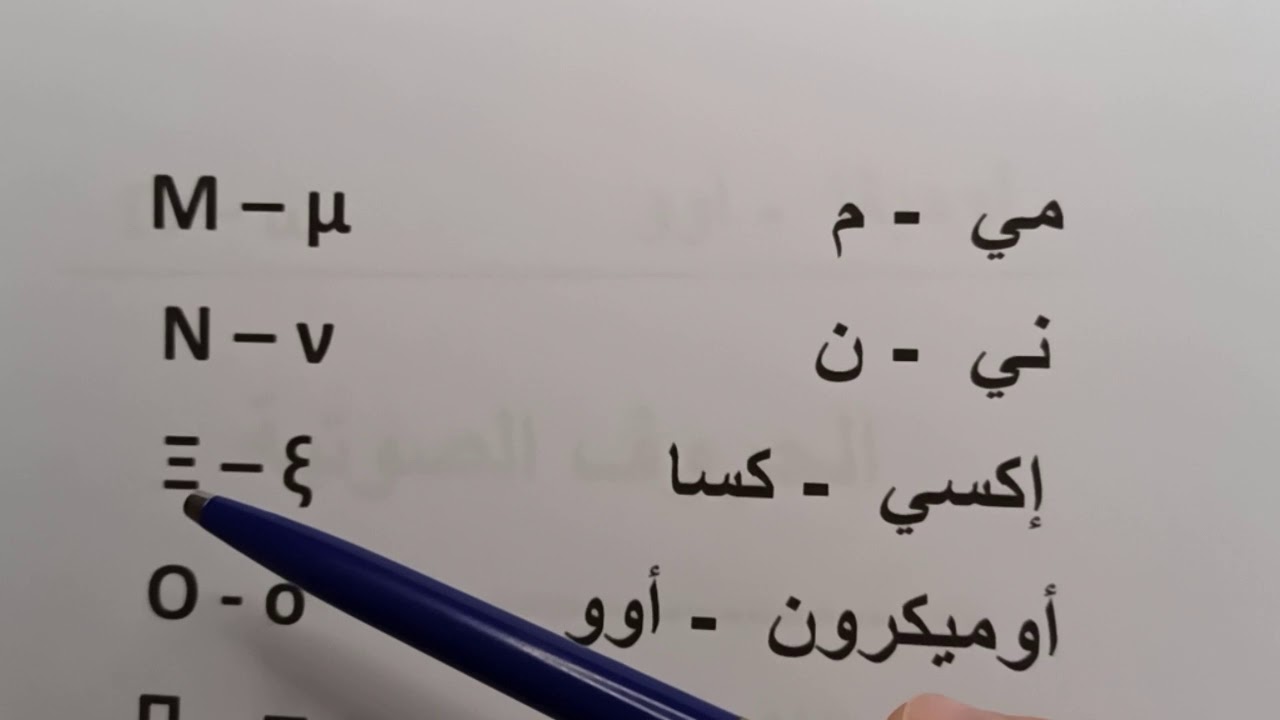 M – μ مي - م
N – ν ني - ن
Ξ – ξ إكسي - كسا
O - o أوميكرون - أوو